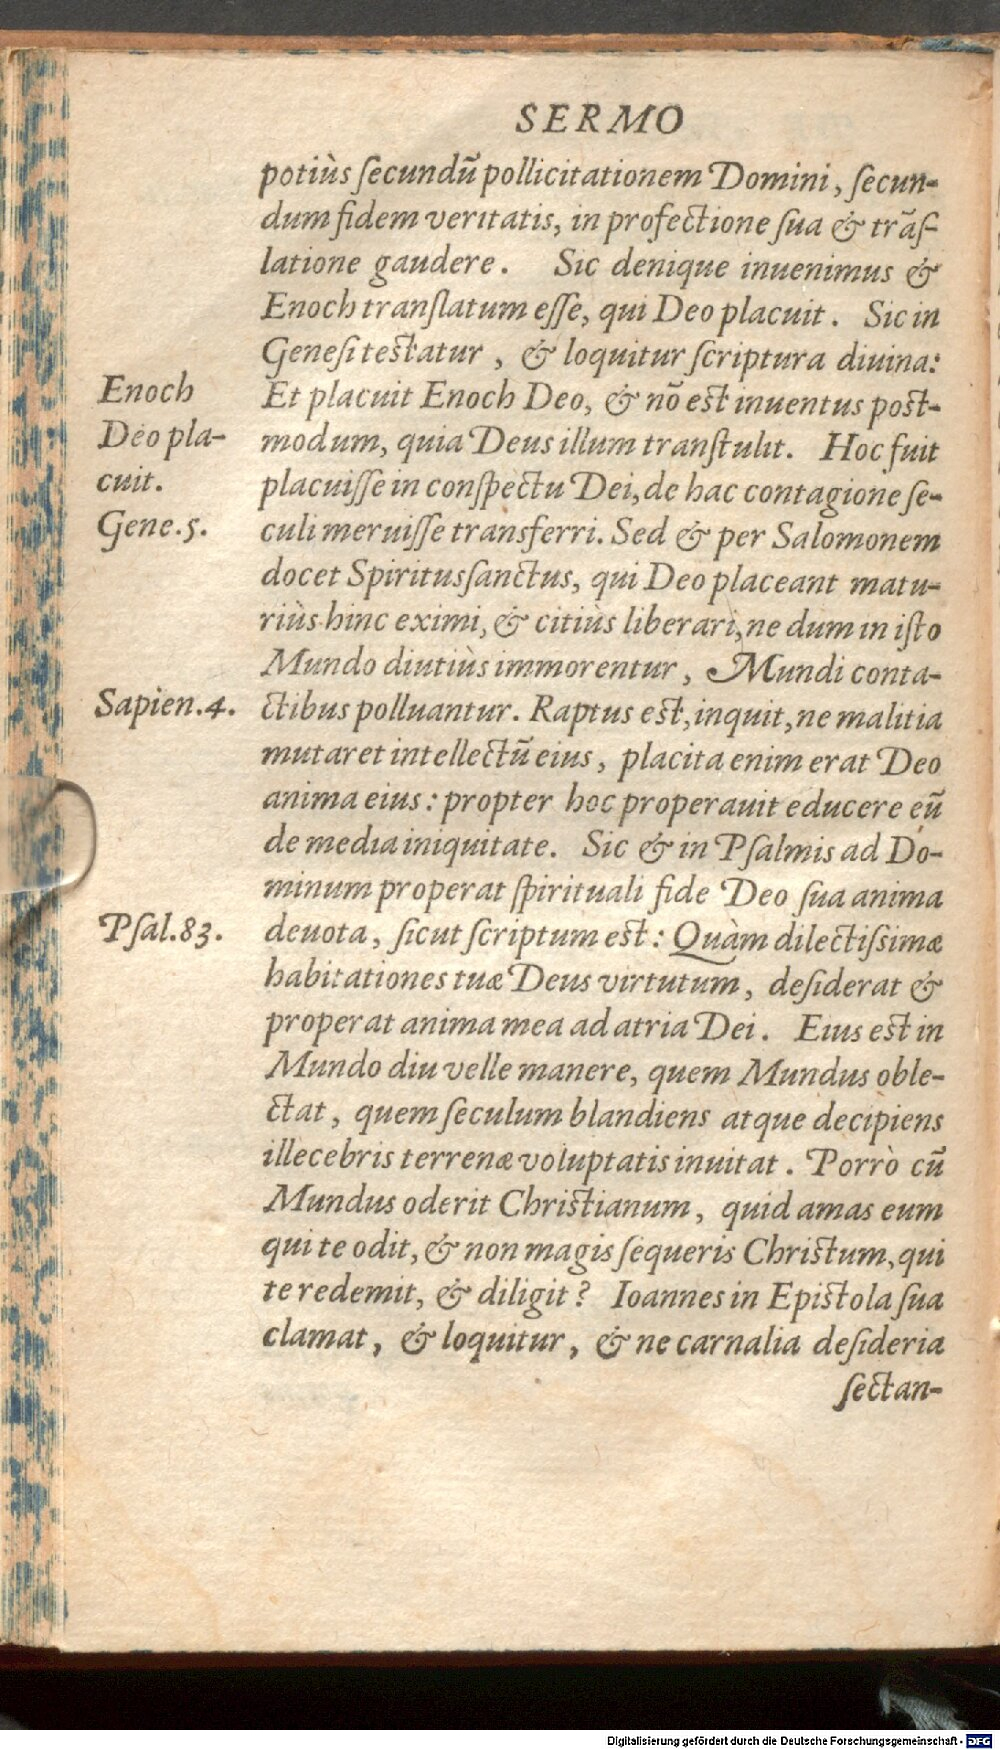 SERMO
potiùs ſecundũ pollicitationem Domini, ſecun-
dum fidem veritatis, in profectione ſua & trãſ-
latione gaudere. Sic denique inuenimus &
Enoch tranſlatum eſſe, qui Deo placuit. Sic in
Geneſi teſtatur, & loquitur ſcriptura diuina:
Enoch
Deo pla-
cuit.
Gene.5.
Et placuit Enoch Deo, & nõ eſt inuentus poſt-
modum, quia Deus illum tranſtulit. Hoc fuit
placuiſſe in conſpectu Dei, de hac contagione ſe-
culi meruiſſe transferri. Sed & per Salomonem
docet Spiritusſanctus, qui Deo placeant matu-
riùs hinc eximi, & citiùs liberari, ne dum in iſto
Mundo diutiùs immorentur, Mundi conta-
Sapien.4.
ctibus polluantur. Raptus eſt, inquit, ne malitia
mutaret intellectũ eius, placita enim erat Deo
anima eius: propter hoc properauit educere eũ
de media iniquitate. Sic & in Pſalmis ad Do-
minum properat ſpirituali fide Deo ſua anima
Pſal.83.
deuota, ſicut ſcriptum eſt: Quàm dilectiſsimæ
habitationes tuæ Deus virtutum, deſiderat &
properat anima mea ad atria Dei. Eius eſt in
Mundo diu velle manere, quem Mundus oble-
ctat, quem ſeculum blandiens atque decipiens
illecebris terrenæ voluptatis inuitat. Porrò cũ
Mundus oderit Chriſtianum, quid amas eum
qui te odit, & non magis ſequeris Chriſtum, qui
te redemit, & diligit? Ioannes in Epiſtola ſua
clamat, & loquitur, & ne carnalia deſideria
ſectan-
Digitalisierung gefördert durch die Deutsche Forschungsgemeinschaft - DFG